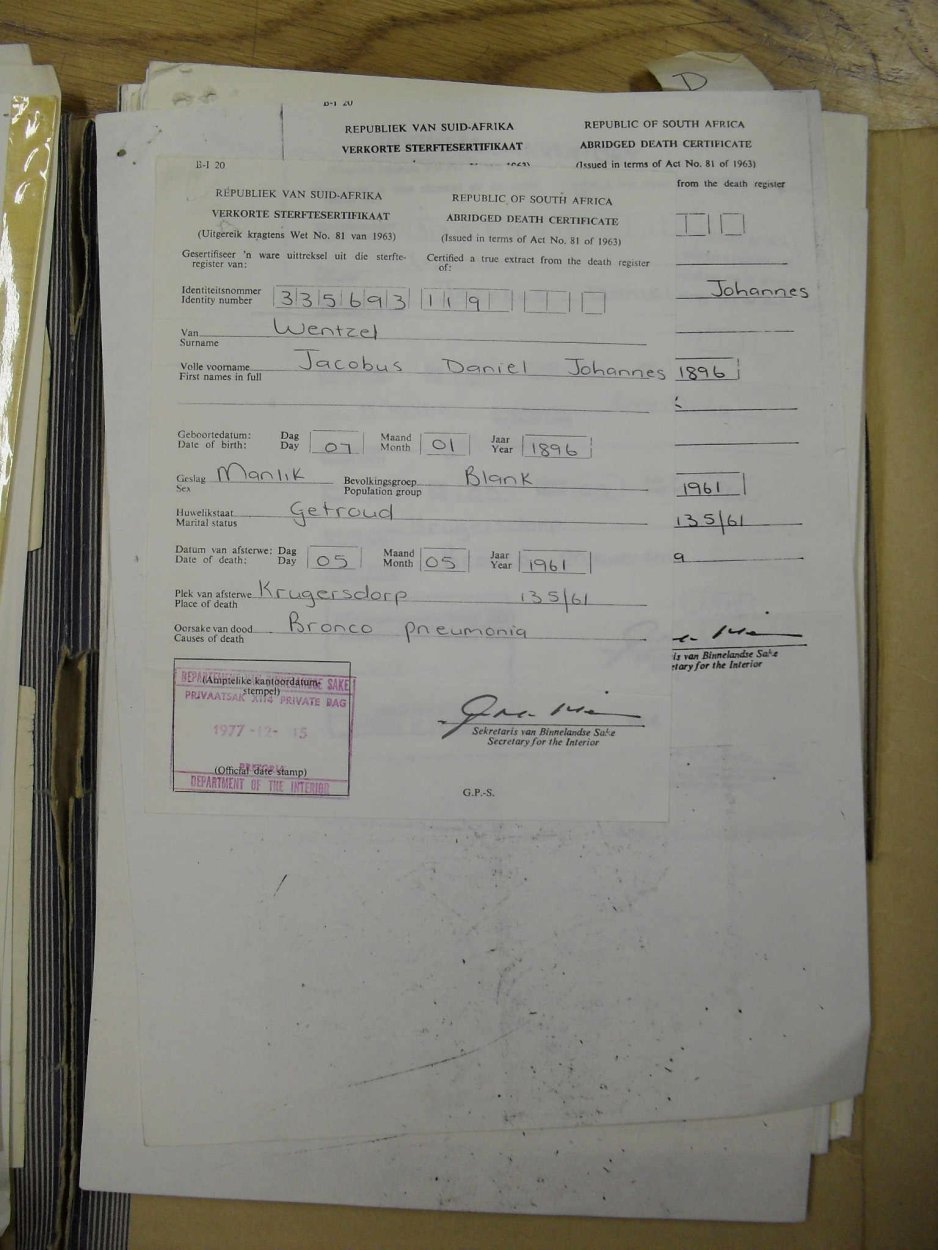 D
B-I 20
REPUBLIEK VAN SUID-AFRIKA REPUBLIC OF SOUTH AFRICA
VERKORTE STERFTESERTIFIKAAT ABRIDGED DEATH CERTIFICATE
(Issued in terms of Act No. 81 of 1963)
from the death register
Johannes
1896
1961
135/61
a
is van Binnelandse Sake
etary for the Interior
B-I 20
REPUBLIEK VAN SUID-AFRIKA REPUBLIC OF SOUTH AFRICA
VERKORTE STERFTESERTIFIKAAT ABRIDGED DEATH CERTIFICATE
(Uitgereik kragtens Wet No. 81 van 1963) (Issued in terms of Act No. 81 of 1963)
Gesertifiseer 'n ware uittreksel uit die sterfte- Certified a true extract from the death register
register van: of:
Identiteitsnommer 335693 119
Identity number
Van Wentzel
Surname
Volle voorname Jacobus Daniel Johannes
First names in full
Geboortedatum: Dag Maand Jaar
Date of birth: Day 07 Month 01 Year 1896
Geslag Manlik Bevolkingsgroep Blank
Sex Population group
Huwelikstaat Getroud
Marital status
Datum van afsterwe: Dag Maand Jaar
Date of death: Day 05 Month 05 Year 1961
Plek van afsterwe Krugersdorp 135/61
Place of death
Oorsake van dood Bronco pneumonia
Causes of death
(Amptelike kantoordatum-
stempel)
SAKE
PRIVAATSAK X114 PRIVATE BAG
1977-12-15
PRETORIA
(Official date stamp)
DEPARTMENT OF THE INTERIOR
Sekretaris van Binnelandse Sake
Secretary for the Interior
G.P.-S.